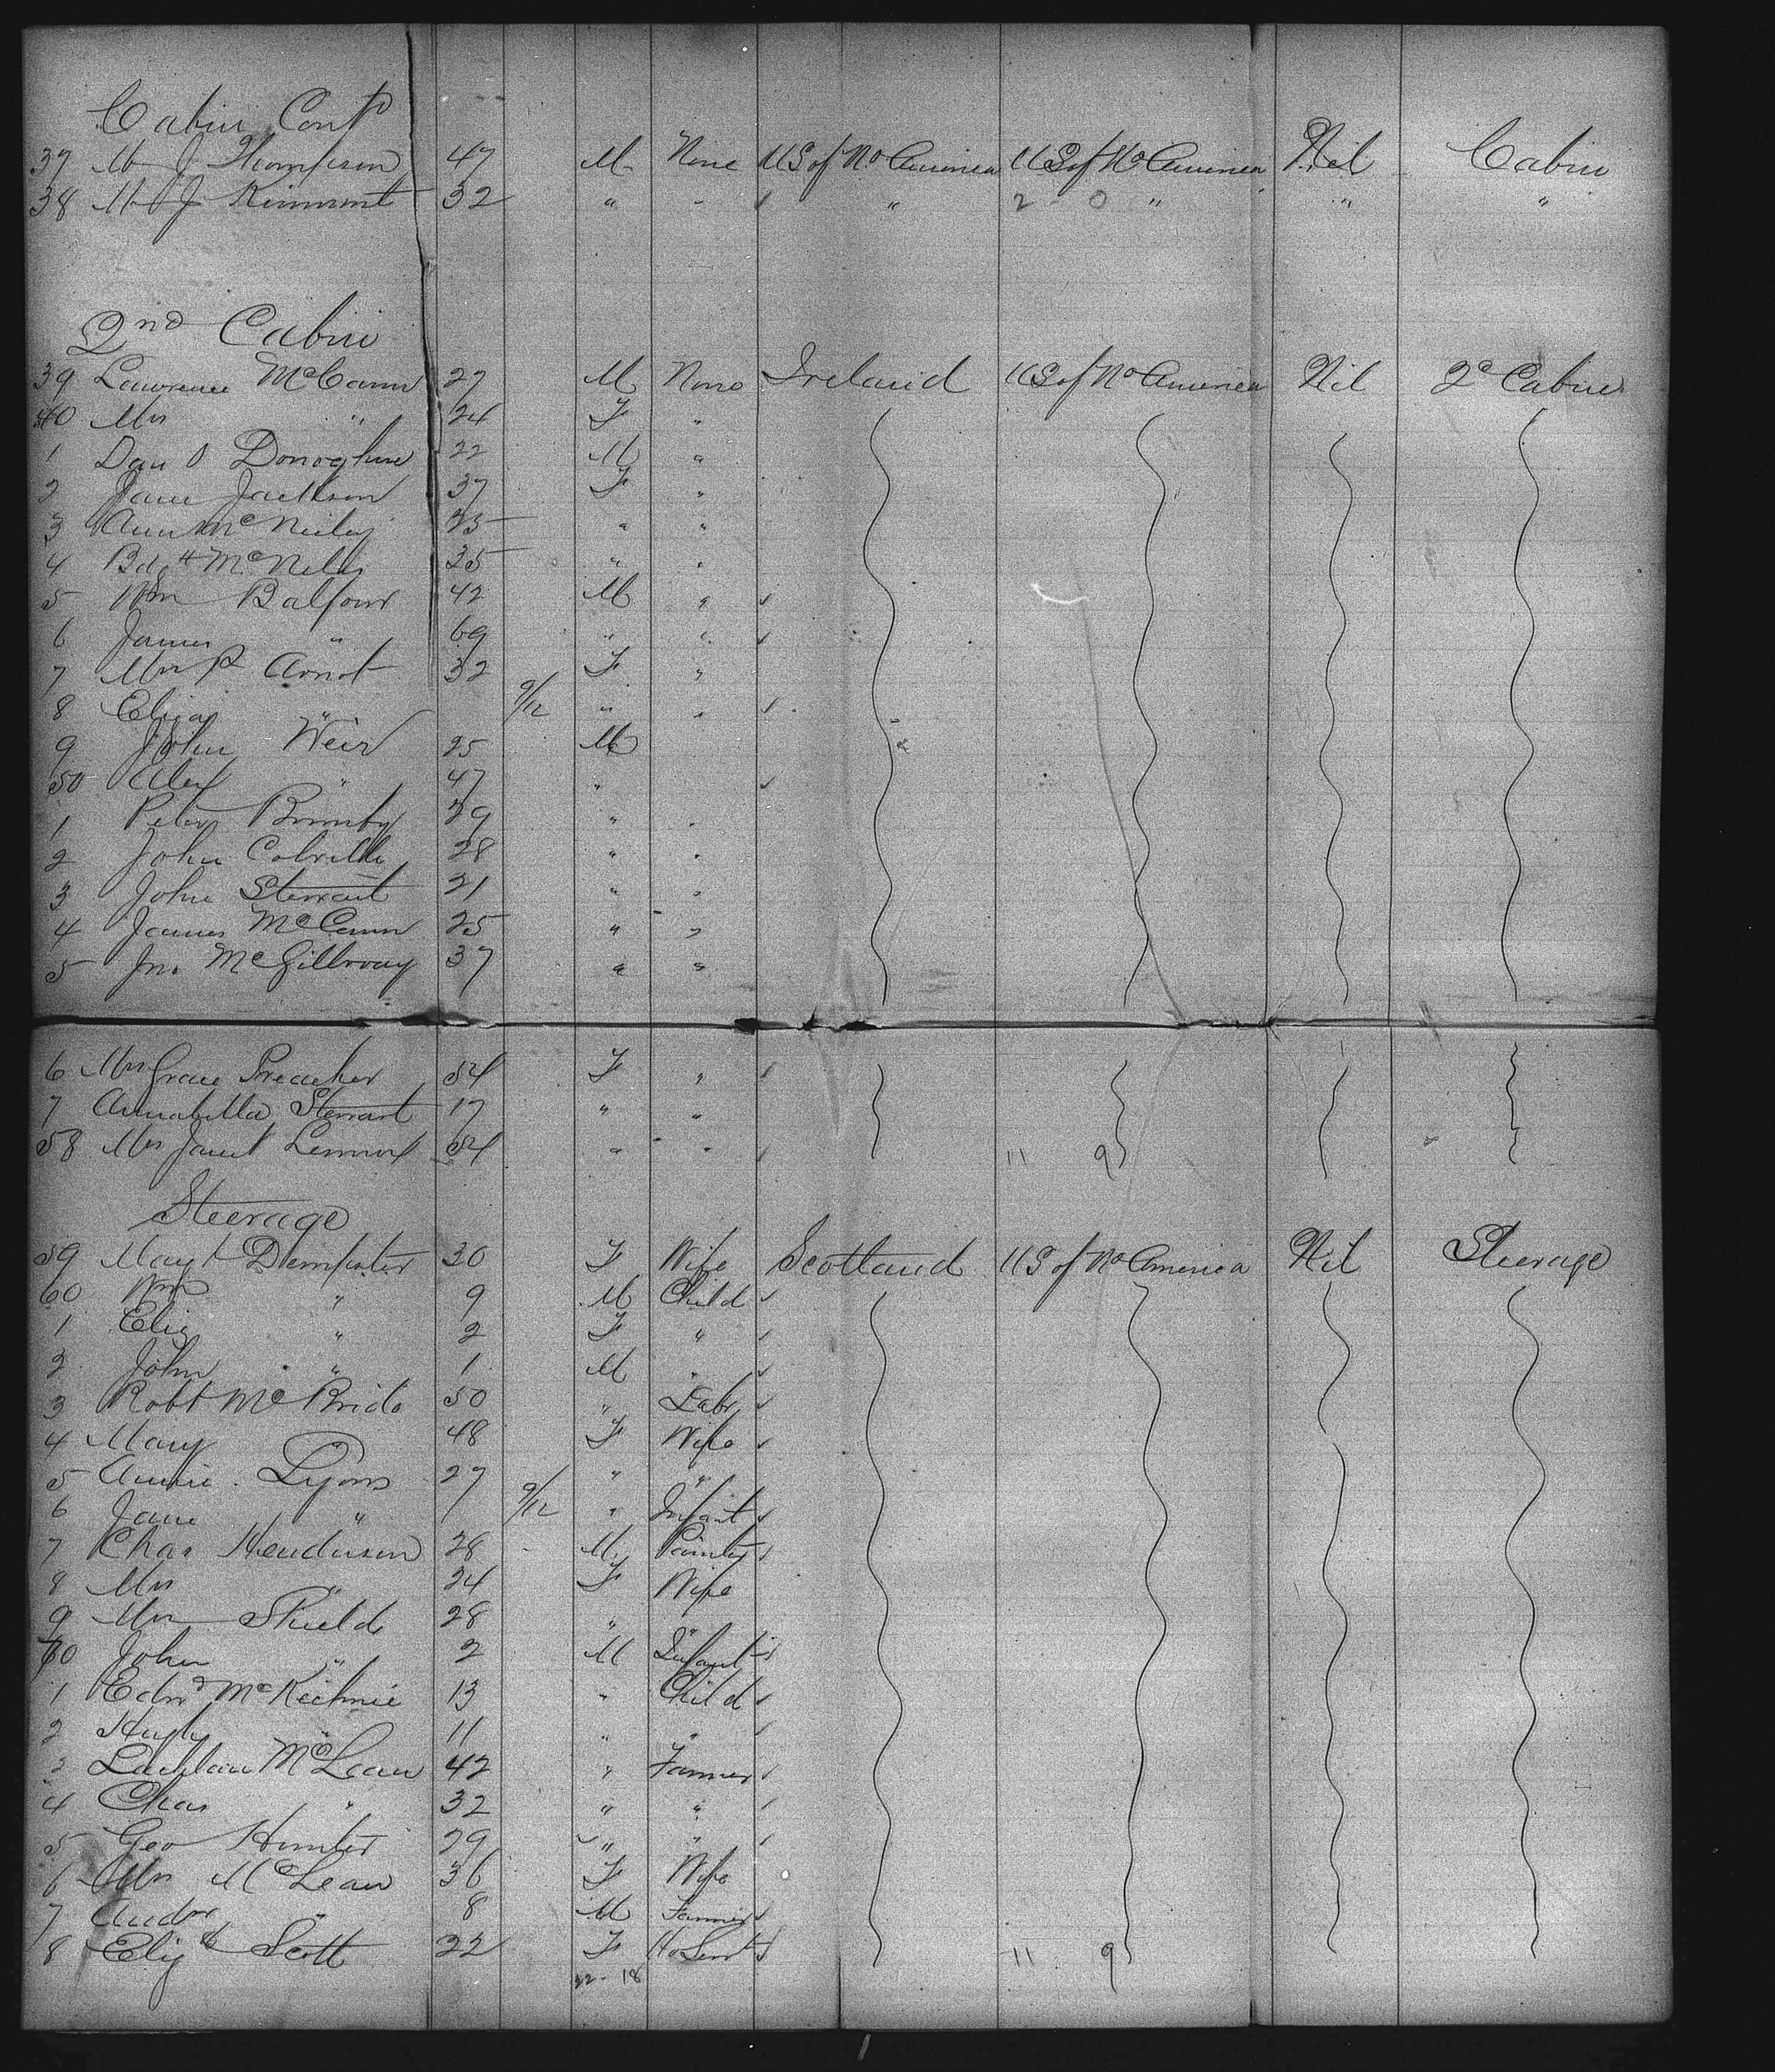 Cabin Contd
37 Mr J Thompson 47 M None US of No America US of No America Nil Cabin
38 Mr J Kinmont 32 " " " 2 0 " " "
2nd Cabin
39 Lawrence McCann 27 M None Ireland US of No America Nil 2d Cabin
40 Mrs " 24 F "
1 Dan O Donoghue 22 M "
2 Jane Jackson 37 F "
3 Ann McNeily 25 " "
4 McNelis 35 " "
5 Wm Balfour 42 M "
6 James " 69 " "
7 Mrs Arnot 32 F "
8 Eliza " 9/12 " "
9 John Weir 25 M
50 Alex " 47 "
1 Peter 29 " "
2 John Colville 28 " "
3 John Stewart 21 " "
4 James McCann 25 " "
5 Jno McGillvray 37 " "
6 Mrs Grace Preacher 54 F "
7 Annabella Stewart 17 " "
58 Mrs Janet Lennox 54 " " 11 9
Steerage
59 Margt Dempster 30 F Wife Scotland US of No America Nil Steerage
60 Wm " 9 M Child
1 Eliz " 2 F "
2 John " 1 M "
3 Robt McBride 50 " Labr
4 Mary 48 F Wife
5 Annie Lyons 27 " "
6 Jane " 9/12 " Infant
7 Chas Henderson 28 M Painter
8 Mrs " 24 F Wife
9 Mrs Shields 28 " "
70 John " 2 M Infant
1 Edwd McKechnie 13 " Child
2 Hugh " 11 " "
3 Lachlan McLean 42 " Farmer
4 Chas " 32 " "
5 Geo Hunter 29 " "
6 Mrs McLean 36 F Wife
7 Andw " 8 M Farmer
8 Elizth Scott 22 F Ho Servt 11 9
22 - 18